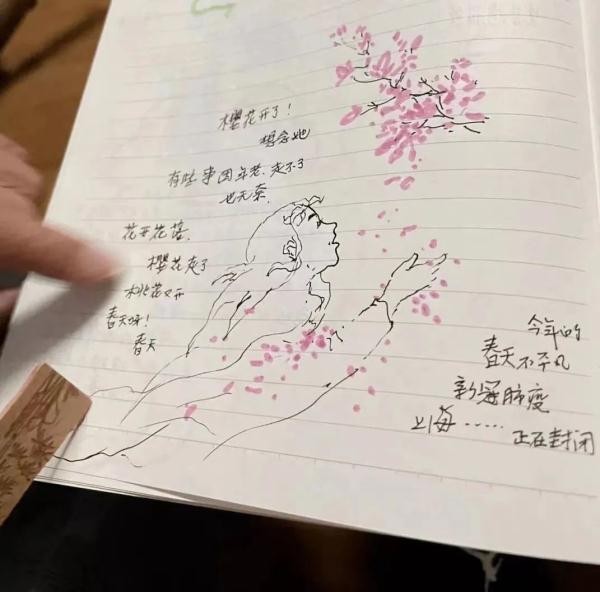 樱花开了！
想念她
有些事因年老.走不了
也无奈.
花开花落.
樱花走了
桃花又开
春天呀！
春天
今年的
春天不平凡
新冠肺疫
上海……正在封闭